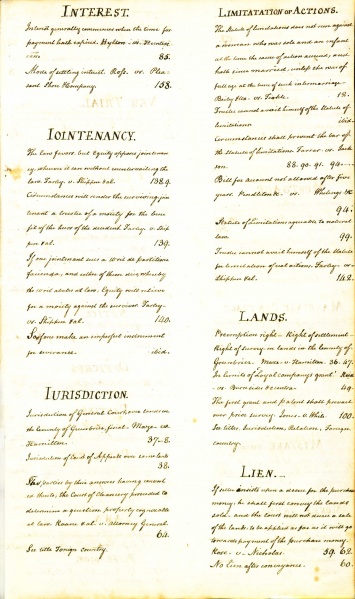 INTEREST.
Interest generally commences when the time for
payment hath expired. Hylton -vs-
85.
Mode of settling interest. Ross. vs. Plea-
sant Shore & Company. 158.
IOINTENANCY.
The law favors but Equity opposes jointenan-
cy, wherever it can without
law. Farley. vs. Shippen & al. 138.9.
Circumstances will render the surviving join
tenant a trustee of a moiety for the bene
fit of the heirs of the decedent Farley. vs. Ship
pen & al. 139.
If one jointenant sues a writ de partitione
facienda, and either of them dies, whereby
the writ abates at law. Equity will relieve
for a moiety against the survivor. Farley.
vs. Shippen & al. 140.
So if one make an imperfect
for ibid.
IURISDICTION.
Jurisdiction of General Court over lands in
the County of Greenbrier, final. Maze. vs.
Hamilton. 37-8.
Jurisdiction of Court of Appeals in
38.
The parties by their answers having consent
ed thereto, the Court of Chancery proceeded to
determine a question properly cognizable
at law Roane & al. v. Attorney General.
64.
See title Foreign country.
LIMITATATION OF ACTIONS.
The Statute of limitations does not run against
a woman who was sole and an infant
at the time the cause of action accrued, and
hath since married, unless she was of
full age at the time of such intermarriage.
vs. Teakle. 12.
Trustee cannot avail himself of the Statute of
limitations ibid.
Circumstances shall prevent the bar of
the Statute of Limitations. Farrar vs. Jack
son. 88. 90. 91. 94.
Bill for account not allowed after five
years. Pendleton &c. vs. Whiting &c
94.
Statute of Limitations agreeable to natural
law. 99.
Trustee cannot avail himself of the Statute
for limitation of real actions. Farley. vs.
Shippen & al. 142.
LANDS.
Preemption right - Right of settlement -
Right of survey in lands in the County of
Greenbrier. Maze - v - Hamilton. 36. 47.
In limits of Loyal company's grant Ross
- vs - 49.
The first grant and patent shall prevail
over prior survey. Jones. v. White. 100.
See titles Jurisdiction, Relation, Foreign
country.
LIEN.
If seller insists upon a decree for the purchase
money, he shall first convey the lands
sold. and the court will not decree a sale
of the lands to be applied as far as it will go
towards payment of the purchase money.
Rose. v. Nicholas. 59. 62.
No lien after conveyance. 60.